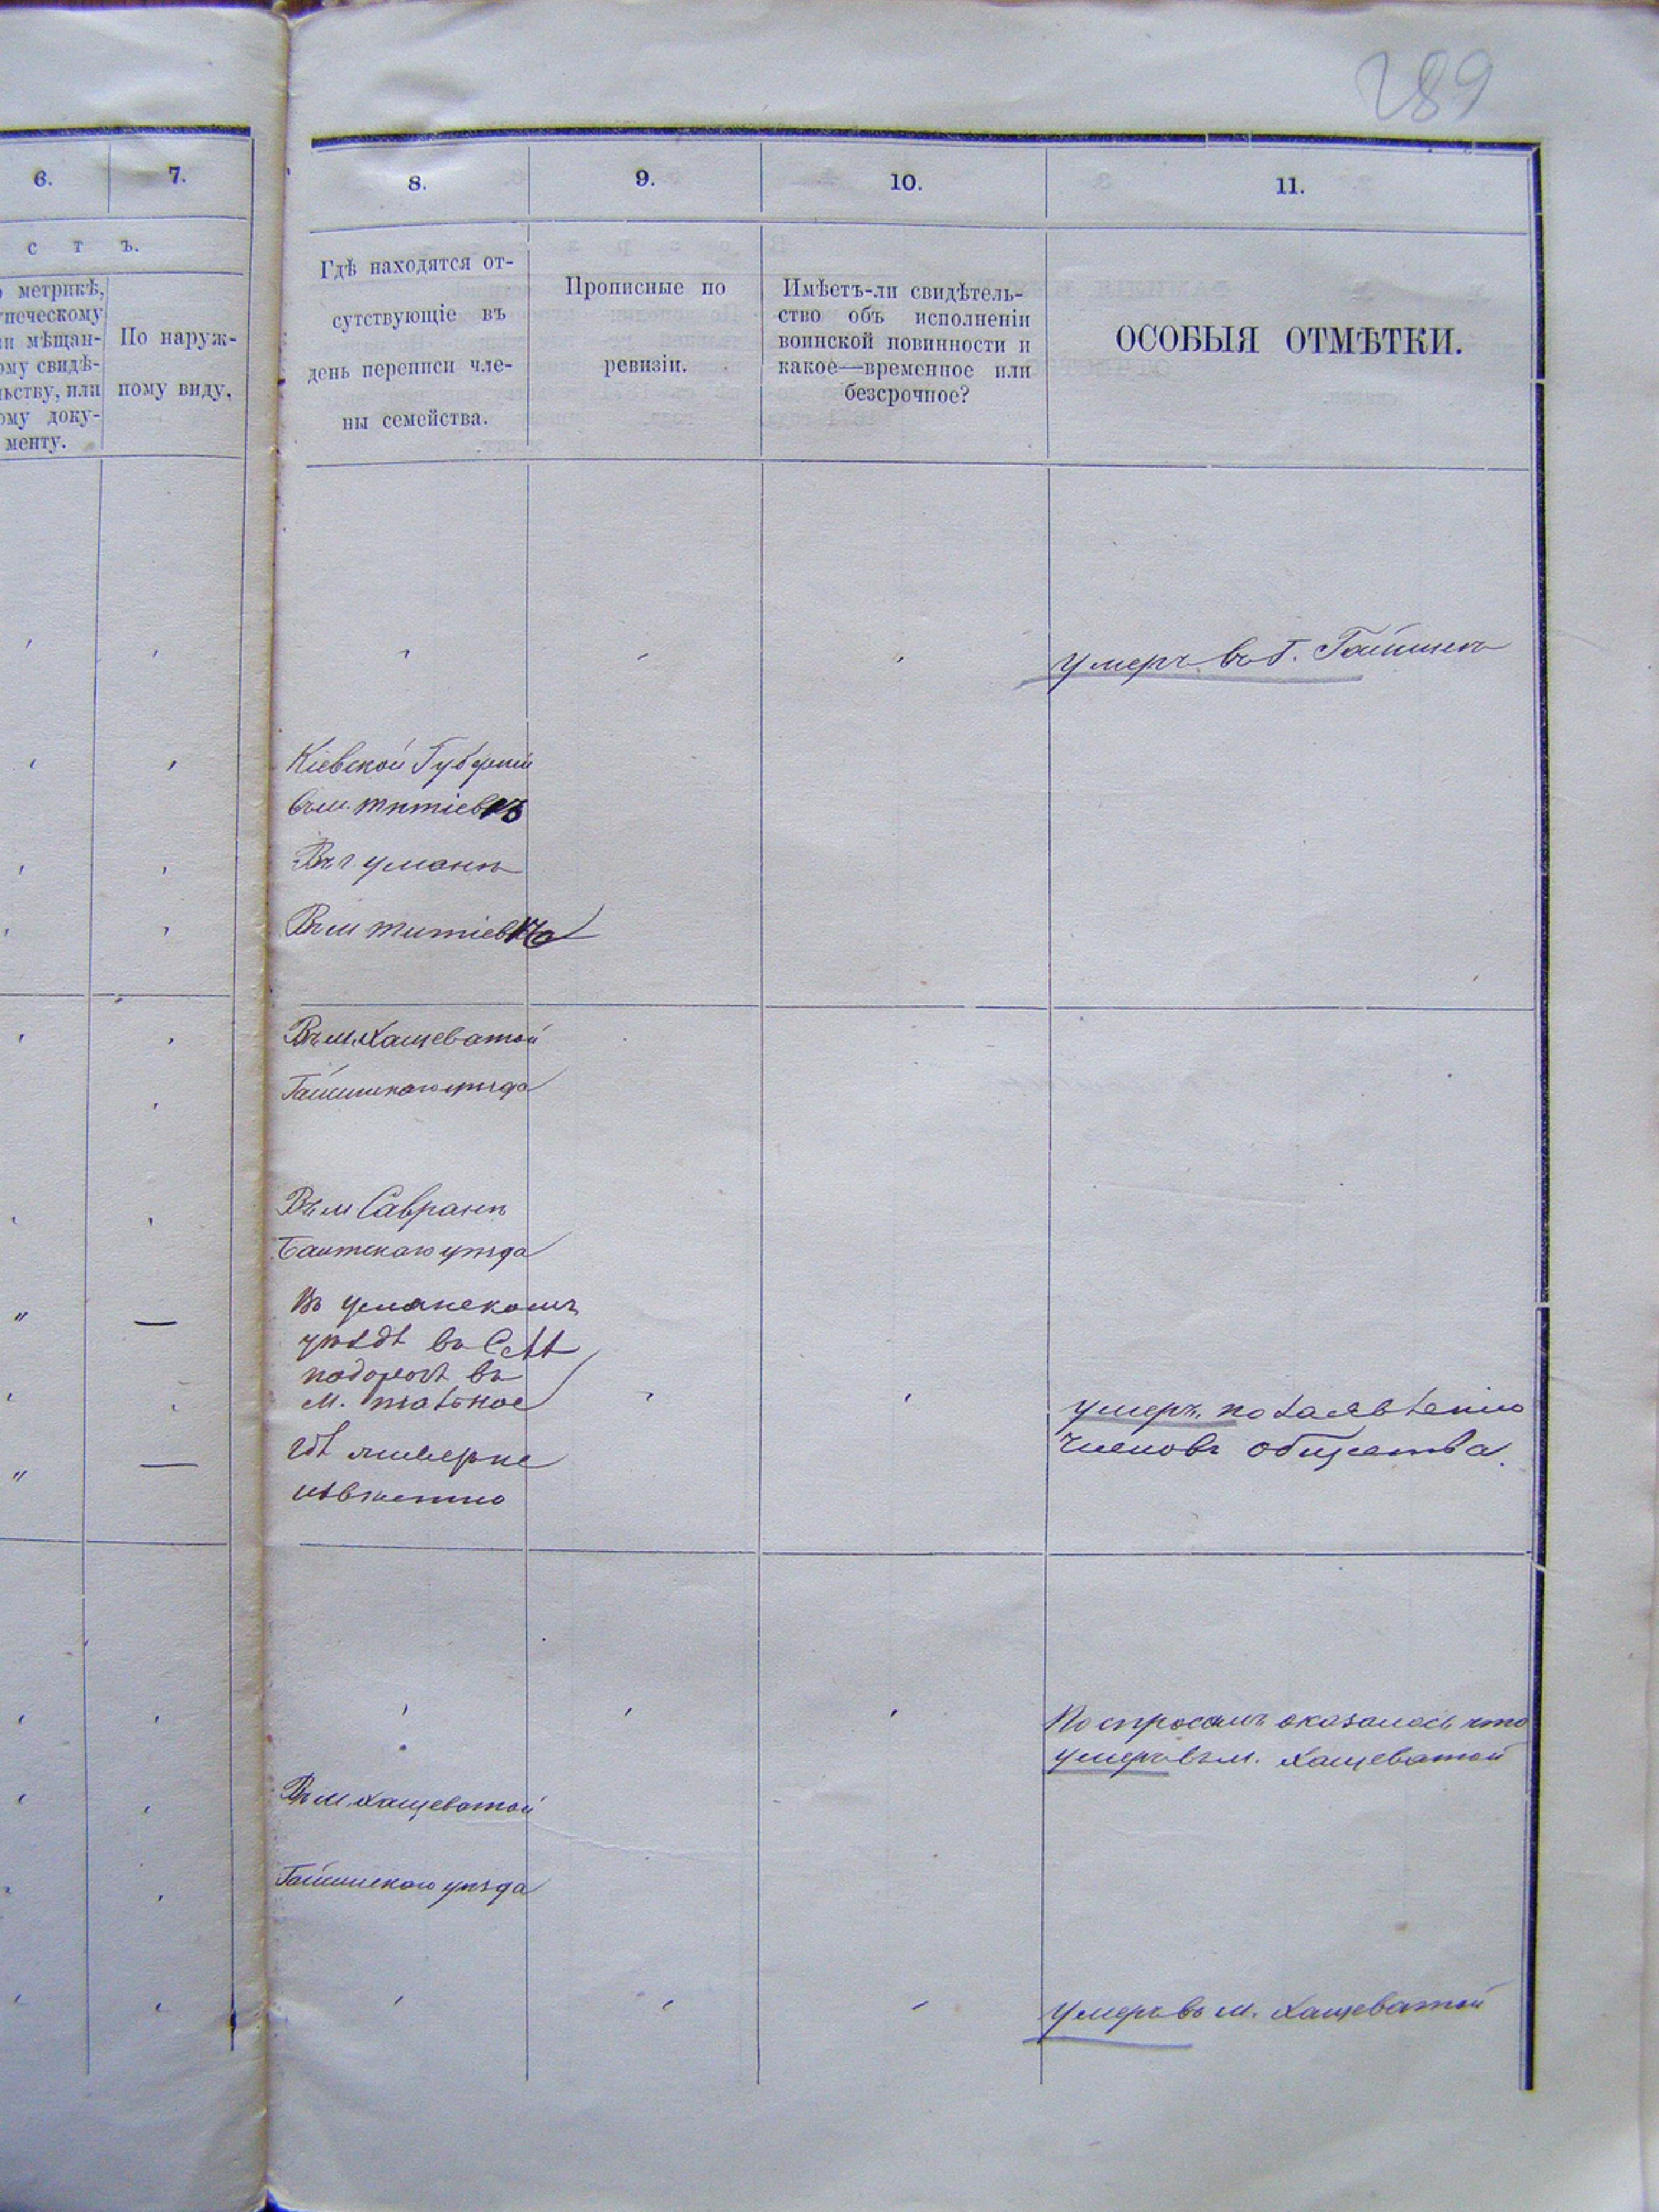 289
6.
7.
8.
9.
10.
11.
с т ъ.
метрикѣ,
печескому
и мѣщан-
ому свидѣ-
льству, или
ому доку-
менту.
По наруж-
ному виду.
Гдѣ находятся от-
сутствующіе въ
день переписи чле-
ны семейства.
Прописные по
ревизіи.
Имѣетъ-ли свидѣтель-
ство объ исполненіи
воинской повинности и
какое—временное или
безсрочное?
ОСОБЫЯ ОТМѢТКИ.
умеръ въ г. Гайсинѣ
Кіевской Губерніи
въ м. тетіевкѣ
Въ г. уманѣ
Въ м тетіевкѣ
Въ м. Хащеватой
Гайсинскаго уѣзда
Въ м Саврани
Балтскаго уѣзда
Въ уманскомъ
уѣздѣ въ Селѣ
въ
м.
умеръ по заявленію
членовъ общества.
гдѣ не
извѣстно
По спросамъ оказалось что
умеръ въ м. Хащеватой
Въ м. Хащеватой
Гайсинскаго уѣзда
умеръ въ м. Хащеватой